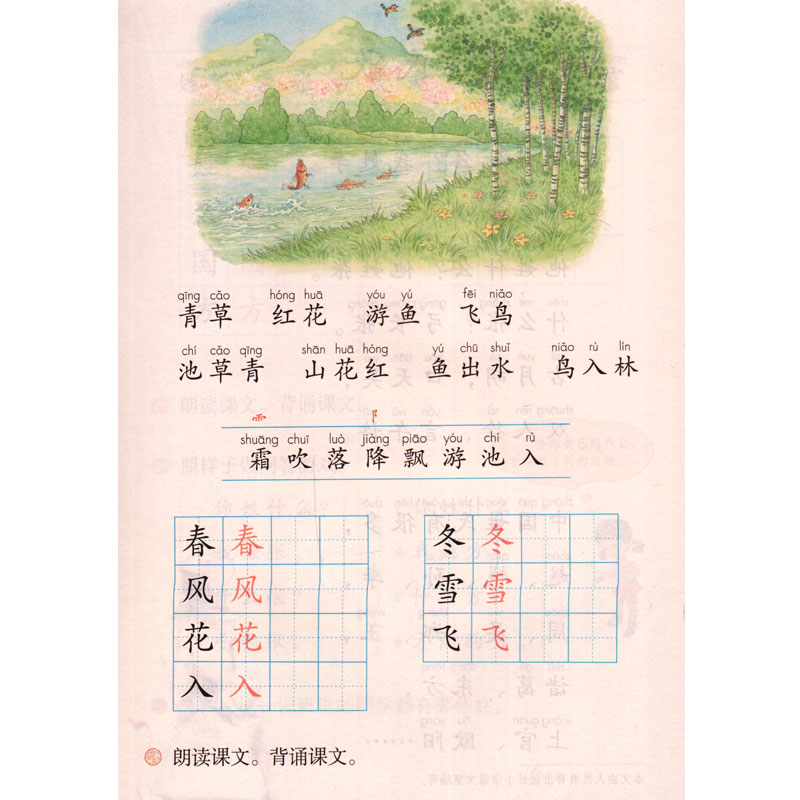 qīng cǎo hóng huā yóu yú fēi niǎo
青草 红花 游鱼 飞鸟
chí cǎo qīng shān huā hóng yú chū shuǐ niǎo rù lín
池草青 山花红 鱼出水 鸟入林
⻗ 阝
shuāng chuī luò jiàng piāo yóu chí rù
霜 吹 落 降 飘 游 池 入
春 春 冬 冬
风 风 雪 雪
花 花 飞 飞
入 入
朗读课文。背诵课文。